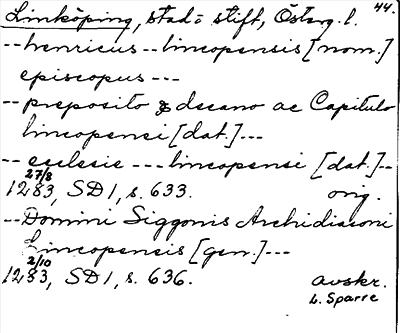 44.
Linköping, stad i stift, Österg. l.
-- henricus -- lincopensis [nom.]
episcopus ---
-- preposito & decano ac Capitulo
lincopensi [dat.] ---
-- ecclesie --- lincopensi [dat.] --
27/8
1283, SD 1, s. 633. orig.
-- Domini Siggonis Archidiaconi
Lincopensis [gen.] ---
2/10
1283, SD 1, s. 636. avskr.
L. Sparre